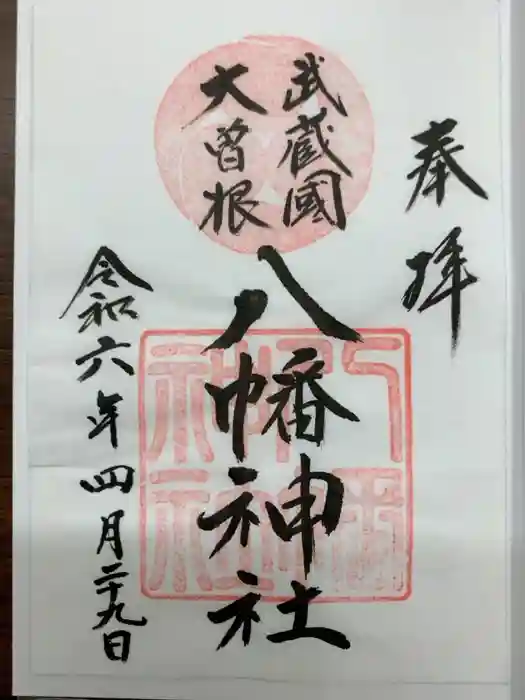 奉拝
武蔵國
大曽根
八幡神社
令和六年四月二十九日
八幡
神社